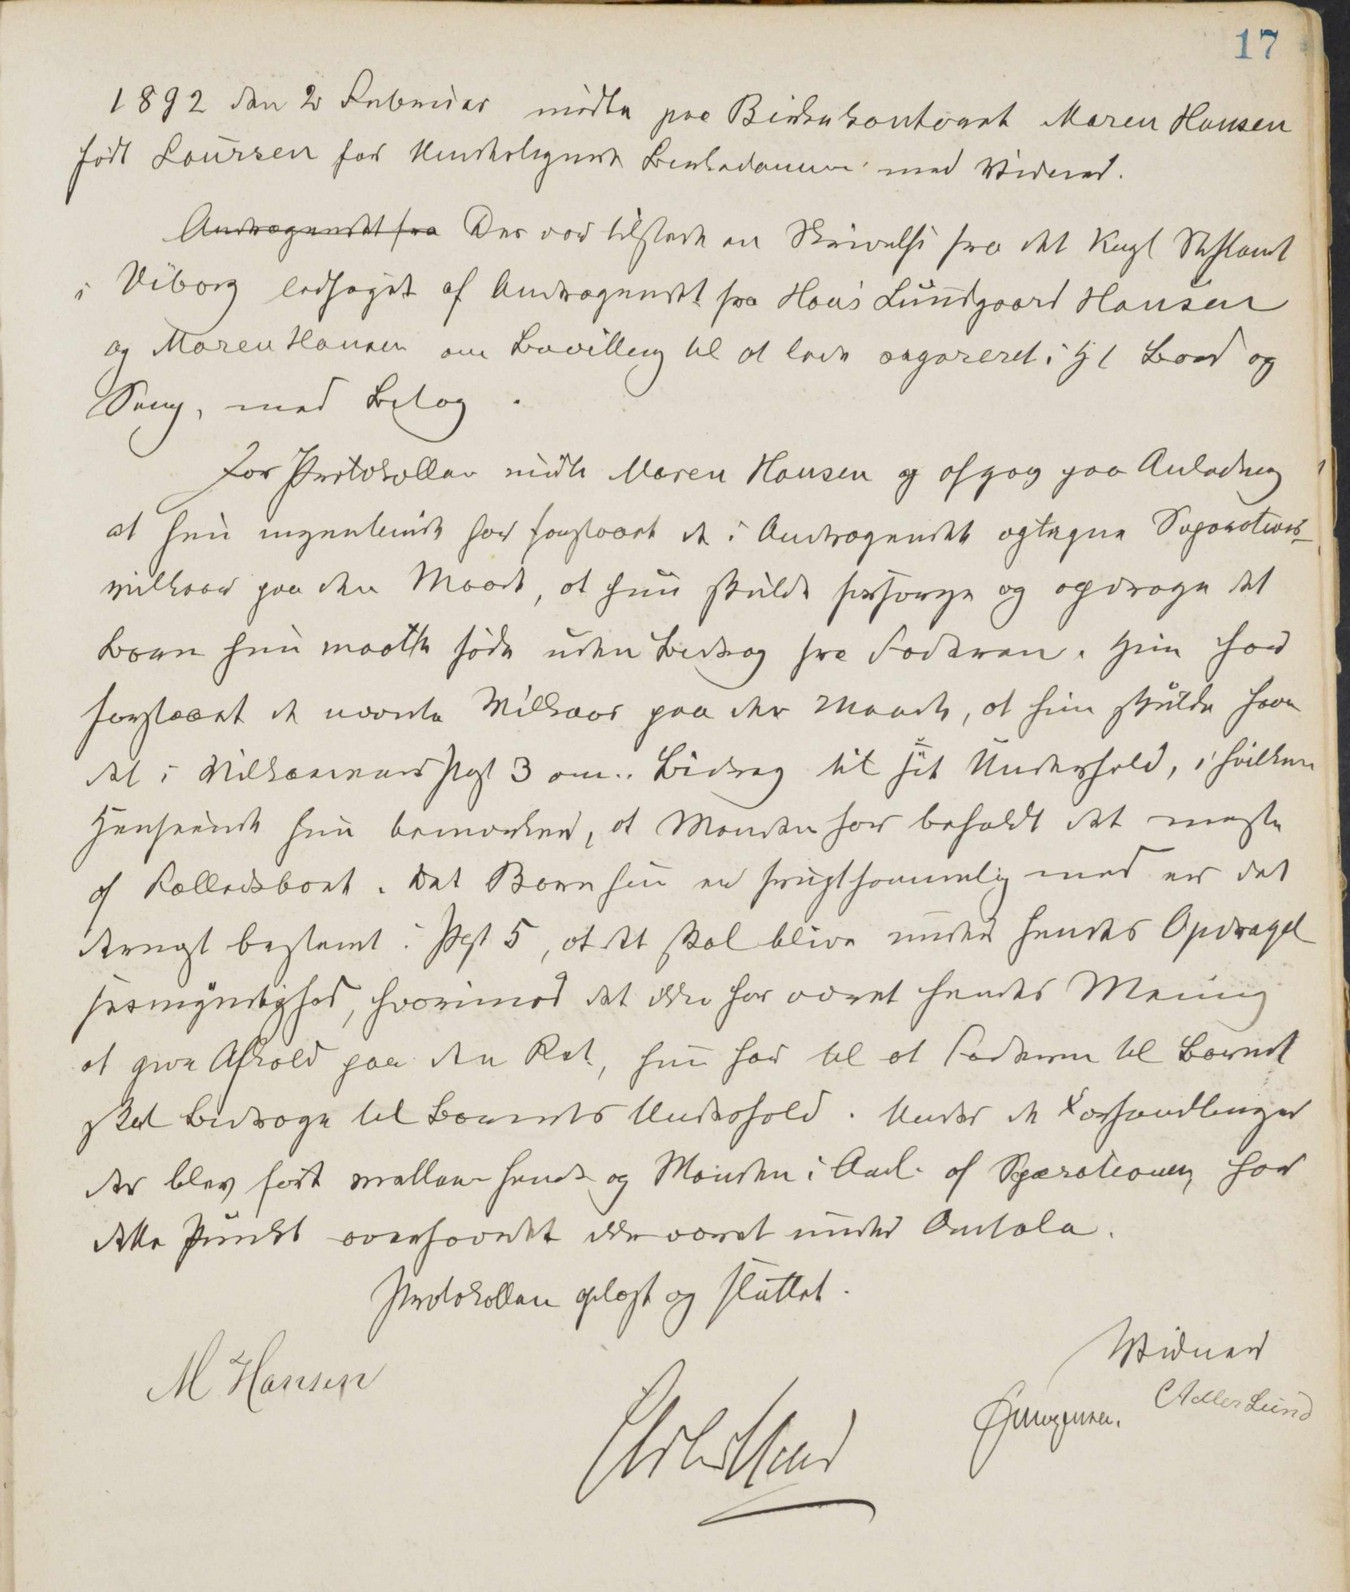 17
1892 den 2 Februar mødte paa Birkekontoret Maren Hansen
født Laursen for Undertegnede Birkedommer med Vidner.
Andragendet fra Der var tilstede en Skrivelse fra det Kngl Stiftamt
i Viborg ledsaget af Andragendet fra Hans Lundgaard Hansen
og Maren Hansen om Bevilling til at leve separeret i Hst Bord og
Seng, med Bilag.
For Protokollen mødte Maren Hansen og afgav paa Anledning
at hun ingenlunde har forstaaet de i Andragendet optagne Separations-
vilkaar paa den Maade, at hun skulde forsørge og opdrage det
Barn hun maatte føde uden Bidrag fra Faderen. Hun har
forstaaet de nævnte Vilkaar paa den Maade, at hun skulde have
det i Vilkaarenes Pgt 3 om. Bidrag til sit Underhold, i hvilken
Henseende hun bemærker, at Manden har beholdt det meste
af Fælledsboet. Det Barn hun er frugtsommelig med er det
dernæst bestemt i Pgt 5, at det skal blive under hendes Opdragel
sesmyndighed, hvorimod det ikke har været hendes Mening
at give Afkald paa den Ret, hun har til at Faderen til Barnet
skal bidrage til Barnets Underhold. Under de Forhandlinger
der blev ført mellem hende og Manden i Anl. af Separationen, har
dette Punkt overhovedet ikke været under Omtale.
Protokollen oplæst og sluttet.
Vidner
M Hansen
CAdler Lund